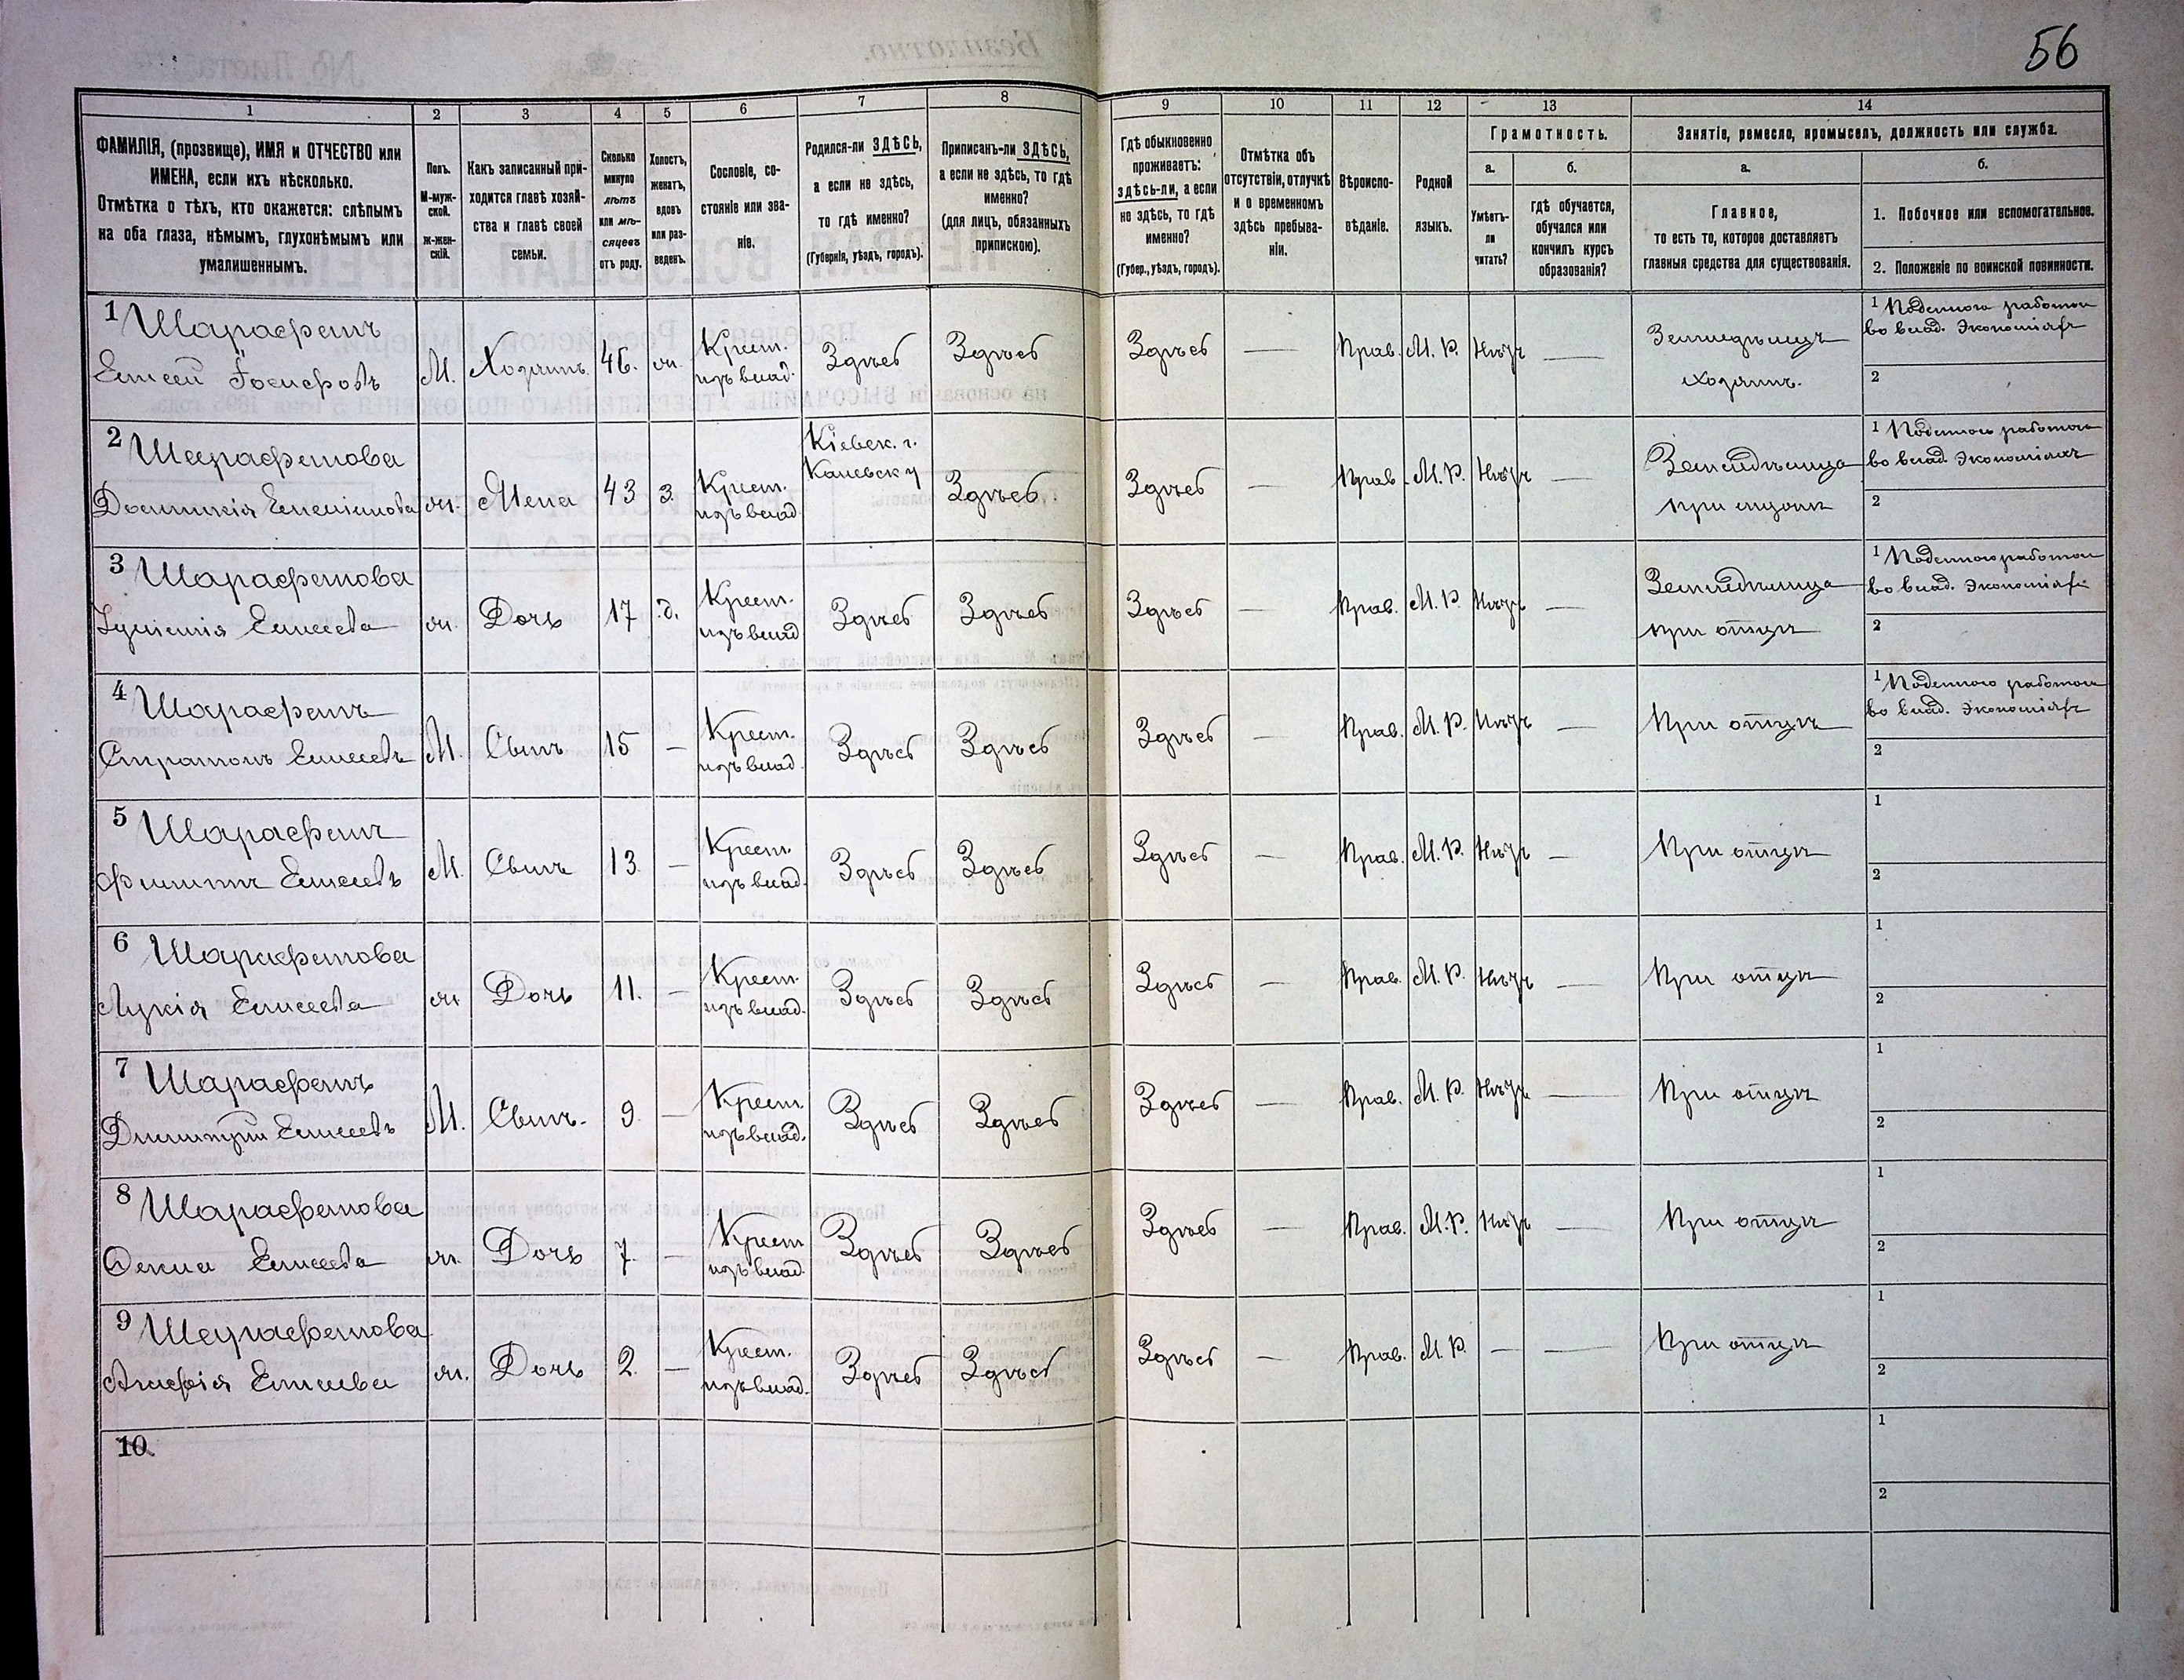 56
1 2 3 4 5 6 7 8 9 10 11 12 13 14
ФАМИЛІЯ, (прозвище), ИМЯ и ОТЧЕСТВО или
ИМЕНА, если ихъ нѣсколько.
Отмѣтка о тѣхъ, кто окажется: слѣпымъ
на оба глаза, нѣмымъ, глухонѣмымъ или
умалишеннымъ.
Полъ.
М-муж-
ской.
Ж-жен-
скій.
Какъ записанный при-
ходится главѣ хозяй-
ства и главѣ своей
семьи.
Сколько
минуло
лѣтъ
или мѣ-
сяцевъ
отъ роду.
Холостъ,
женатъ,
вдовъ
или раз-
веденъ.
Сословіе, со-
стояніе или зва-
ніе.
Родился-ли ЗДѢСЬ,
а если не здѣсь,
то гдѣ именно?
(Губернія, уѣздъ, городъ).
Приписанъ-ли ЗДѢСЬ,
а если не здѣсь, то гдѣ
именно?
(для лицъ, обязанныхъ
припискою).
Гдѣ обыкновенно
проживаетъ:
здѣсь-ли, а если
не здѣсь, то гдѣ
именно?
(Губер., уѣздъ, городъ).
Отмѣтка объ
отсутствіи, отлучкѣ
и о временномъ
здѣсь пребыва-
ніи.
Вѣроиспо-
вѣданіе.
Родной
языкъ.
Грамотность.
а.
Умѣетъ-
ли
читать?
б.
гдѣ обучается,
обучался или
кончилъ курсъ
образованія?
Занятіе, ремесло, промыселъ, должность или служба.
а.
Главное,
то есть то, которое доставляетъ
главныя средства для существованія.
б.
1. Побочное или вспомогательное.
2. Положеніе по воинской повинности.
1 Шарафанъ
Елисей Іосифовъ
М.
Хозяинъ.
46.
ж.
Крест.
изъ влад.
Здѣсь
Здѣсь
Здѣсь
—
Прав.
М. Р.
Нѣтъ
—
Земледѣлецъ
хозяинъ.
1 Поденною работою
во влад. Экономіяхъ
2
2 Шарафанова
Емеліянова
ж.
Жена
43
з.
Крест.
изъ влад
Кіевск. г.
Каневск у
Здѣсь.
Здѣсь
—
Прав.
М. Р.
Нѣтъ
—
Земледѣлица
при мужѣ
1 Поденною работою
во влад. Экономіяхъ
2
3 Шарафанова
Елисеева
ж.
Дочь
17
д.
Крест.
изъ влад
Здѣсь
Здѣсь
Здѣсь
—
Прав.
М. Р.
Нѣтъ
—
Земледѣлица
при отцѣ
1 Поденною работою
во влад. Экономіяхъ
2
4 Шарафанъ
Стратонъ Елисеевъ
М.
Сынъ
15
—
Крест.
изъ влад.
Здѣсь
Здѣсь
Здѣсь
—
Прав.
М. Р.
Нѣтъ
—
При отцѣ
1 Поденною работою
во влад. Экономіяхъ
2
5 Шарафанъ
Филиппъ Елисеевъ
М.
Сынъ
13
—
Крест.
изъ влад.
Здѣсь
Здѣсь
Здѣсь
—
Прав.
М. Р.
Нѣтъ
—
При отцѣ
1
2
6 Шарафанова
Лукія Елисеева
ж
Дочь
11.
—
Крест.
изъ влад.
Здѣсь
Здѣсь
Здѣсь
—
Прав.
М. Р.
Нѣтъ
—
При отцѣ
1
2
7 Шарафанъ
Димитрій Елисеевъ
М.
Сынъ.
9.
—
Крест.
изъ влад.
Здѣсь
Здѣсь
Здѣсь
—
Прав.
М. Р.
Нѣтъ
—
При отцѣ
1
2
8 Шарафанова
Елисеева
ж.
Дочь
7.
—
Крест
изъ влад.
Здѣсь
Здѣсь
Здѣсь
—
Прав.
М. Р.
Нѣтъ
—
При отцѣ
1
2
9 Шарафанова
Агафія Елисеева
ж.
Дочь
2.
—
Крест.
изъ влад.
Здѣсь
Здѣсь
Здѣсь
—
Прав.
М. Р.
—
—
При отцѣ
1
2
10.
1
2